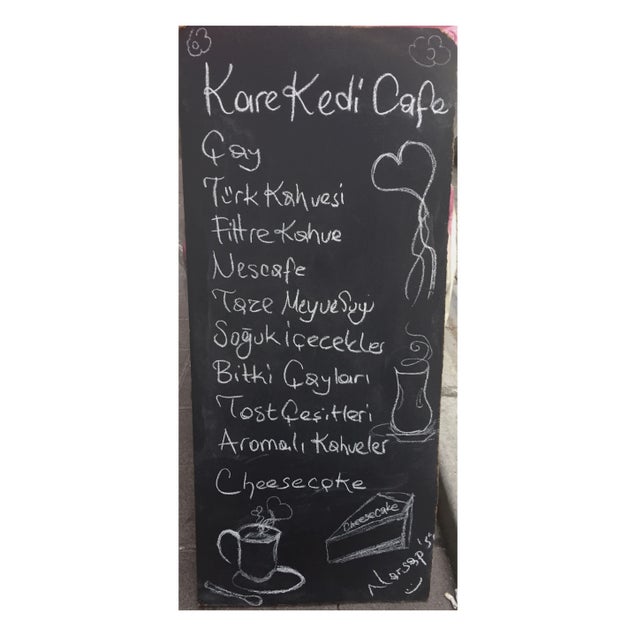 Kare Kedi Cafe
Çay
Türk Kahvesi
Filtre Kahve
Nescafe
Taze Meyve Suyu
Soğuk İçecekler
Bitki Çayları
Tost Çeşitleri
Aromalı Kahveler
Cheesecake
Cheesecake